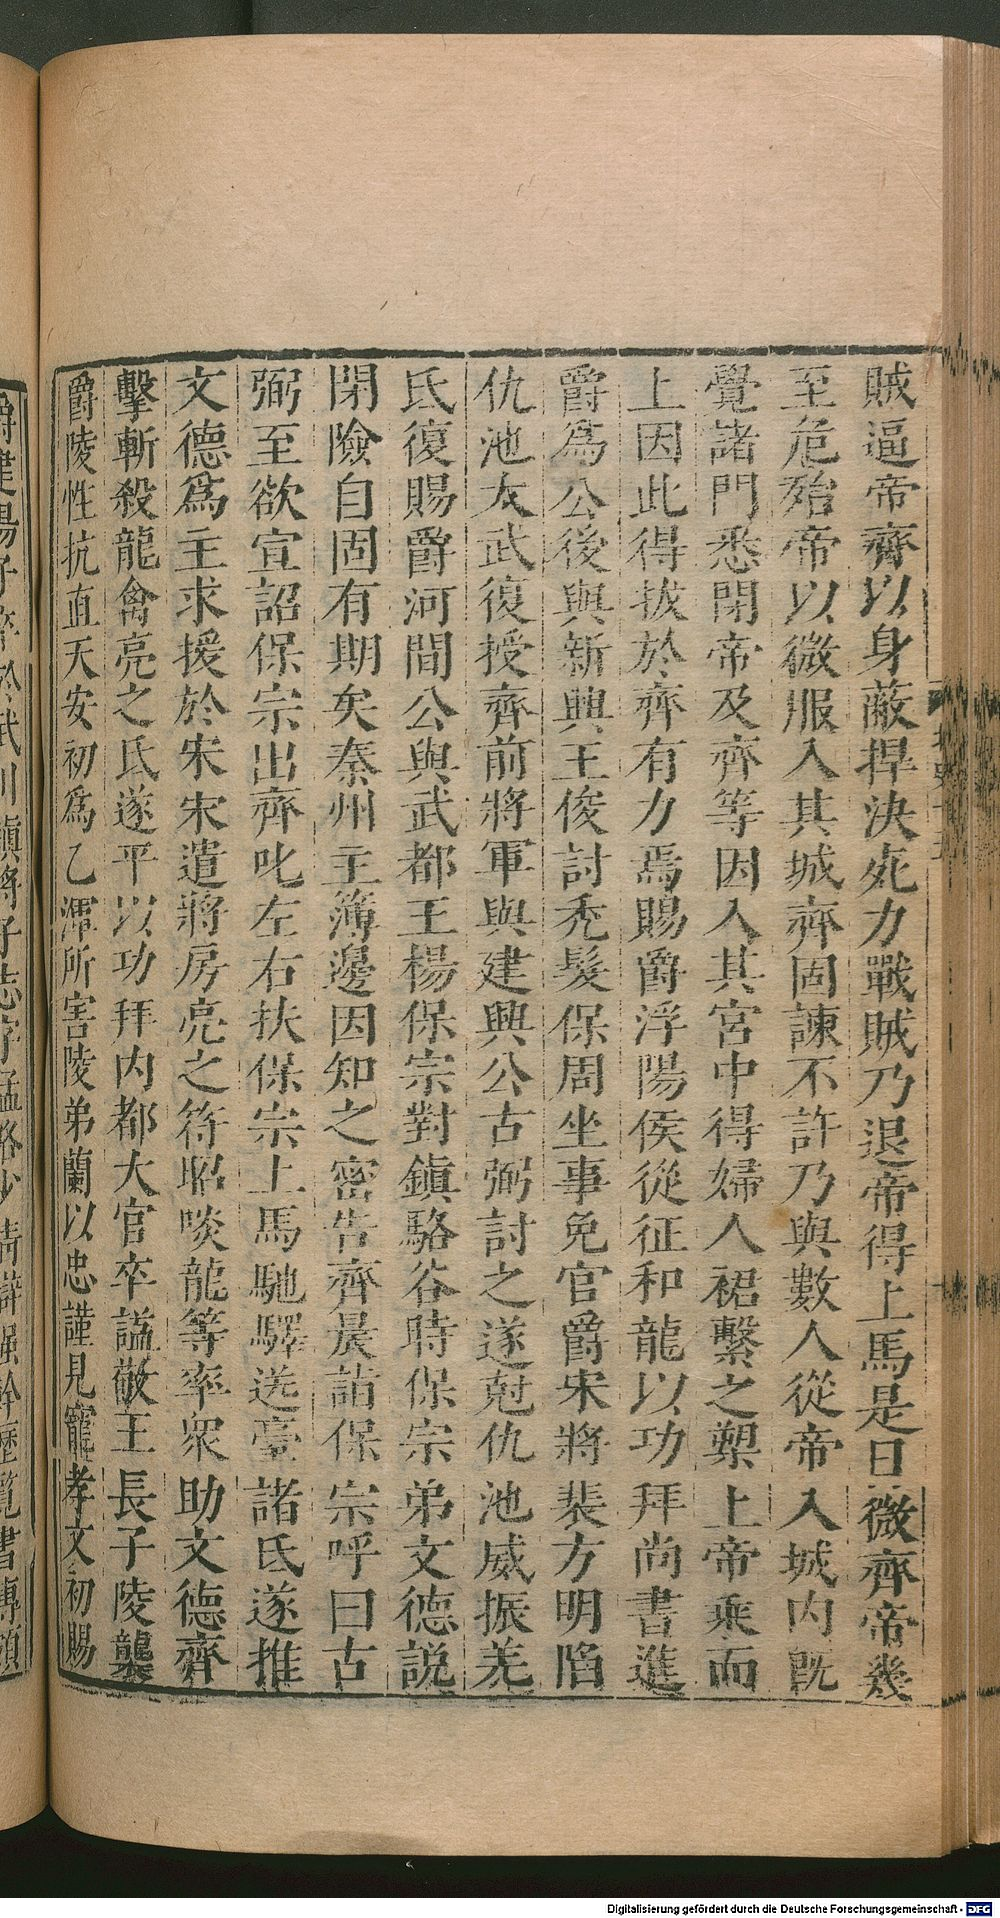 賊逼帝齊以身蔽捍決死力戰賊乃退帝得上馬是日微齊帝幾
至危殆帝以微服入其城齊固諫不許乃與數人從帝入城內旣
覺諸門悉閉帝及齊等因入其宮中得婦人裙繫之槊上帝乘而
上因此得拔於齊有力焉賜爵浮陽侯從征和龍以功拜尚書進
爵爲公後與新興王俊討禿髮保周坐事免官爵宋將裴方明陷
仇池太武復授齊前將軍與建興公古弼討之遂尅仇池威振羌
氐復賜爵河間公與武都王楊保宗對鎮駱谷時保宗弟文德説
閉險自固有期矣秦州主簿邊因知之密告齊晨詣保宗呼曰古
弼至欲宣詔保宗出齊叱左右扶保宗上馬馳驛送臺諸氐遂推
文德爲主求援於宋宋遣將房亮之苻昭啖龍等率衆助文德齊
擊斬殺龍禽亮之氐遂平以功拜內都大官卒謚敬王長子陵襲
爵陵性抗直天安初爲乙渾所害陵弟蘭以忠謹見寵孝文初賜
爵建陽子卒於武川鎮將子志字猛略少清辯強幹歷覽書傳頗
Digitalisierung gefördert durch die Deutsche Forschungsgemeinschaft - DFG